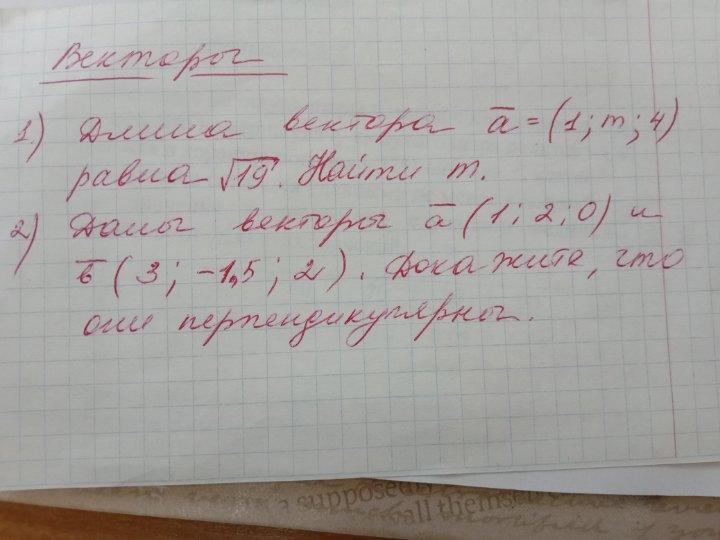 Векторы
1.) Длина вектора a̅ = (1; m; 4)
равна √19. Найти m.
2) Даны векторы a̅ (1; 2; 0) и
b̅ (3; -1,5; 2). Докажите, что
они перпендикулярны.
a supposedly
call themsel